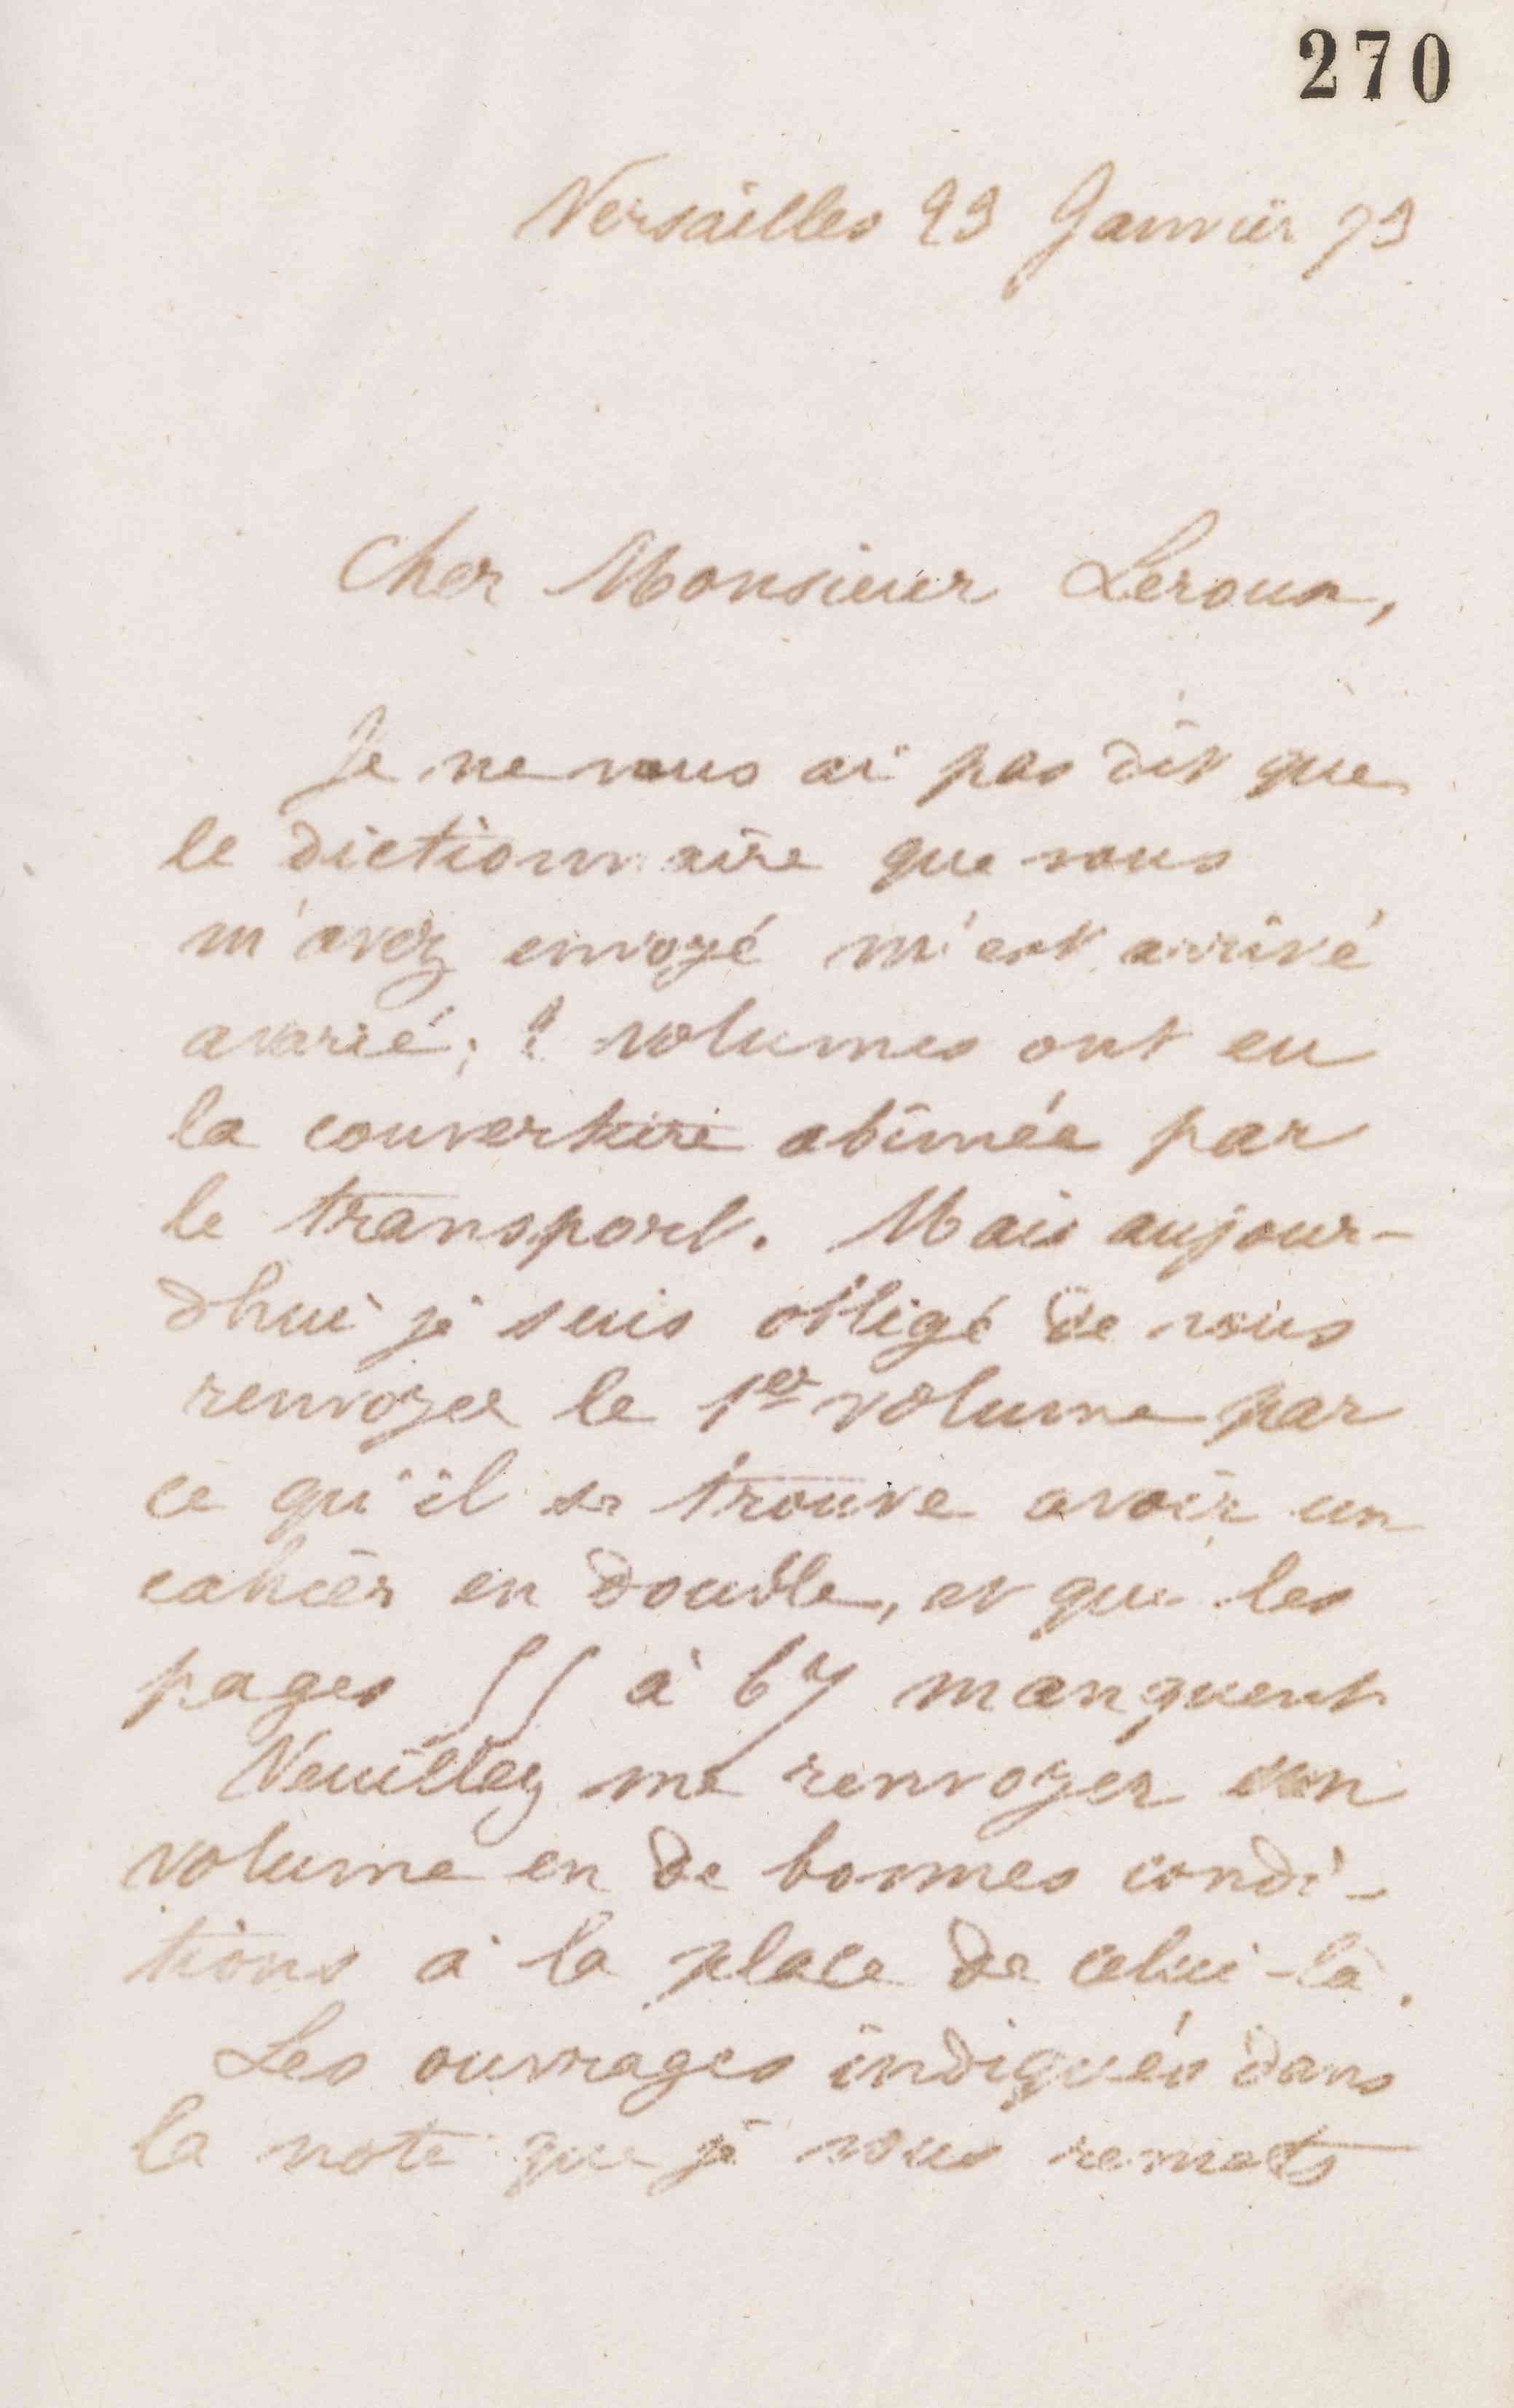 270
Versailles 29 Janvier 79
Cher Monsieur Leroux,
Je ne vous ai pas dit que
le dictionnaire que vous
m'avez envoyé m'est arrivé
avarié; 2 volumes ont eu
la couverture abîmée par
le transport. Mais aujour-
dhui je suis obligé de vous
renvoyer le 1er volume par
ce qu'il se trouve avoir un
cahier en double, et que les
pages 55 à 67 manquent
Veuillez me renvoyer un
volume en de bonnes condi-
tions à la place de celui-là.
Les ouvrages indiqués dans
la note que je vous remets